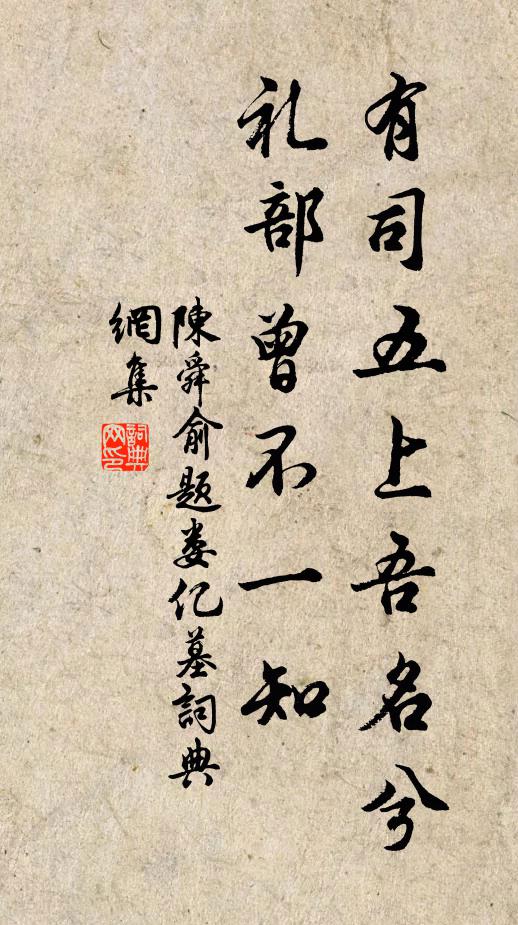 有司五上吾名兮
礼部曾不一知
陳舜俞題娄亿墓詞典
網集
詞典
网印